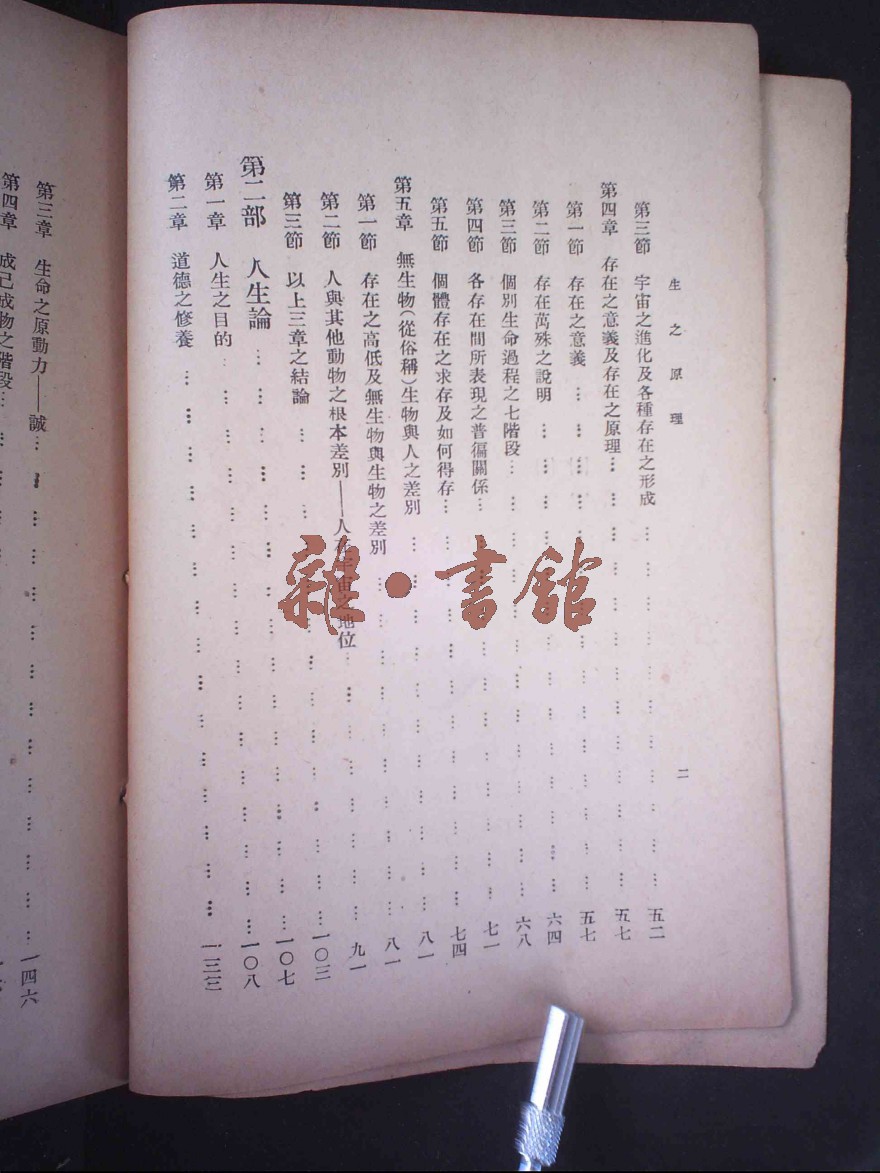 生之原理
二
第三節 宇宙之進化及各種存在之形成 … … … … … … … … 五二
第四章 存在之意義及存在之原理 … … … … … … … … 五七
第一節 存在之意義 … … … … … … … … 五七
第二節 存在萬殊之說明 … … … … … … … … 六四
第三節 個別生命過程之七階段 … … … … … … … … 六八
第四節 各存在間所表現之普徧關係 … … … … … … … … 七一
第五節 個體存在之求存及如何得存 … … … … … … … … 七四
第五章 無生物(從俗稱)生物與人之差別 … … … … … … … … 八一
第一節 存在之高低及無生物與生物之差別 … … … … … … … … 八一
第二節 人與其他動物之根本差別——人在宇宙之地位 … … … … … … 九一
第三節 以上三章之結論 … … … … … … … … 一〇三
第二部 人生論 … … … … … … … … 一〇七
第一章 人生之目的 … … … … … … … … 一〇八
第二章 道德之修養 … … … … … … … … 一三三
第三章 生命之原動力——誠 … … … … … … … … 一四六
第四章 成己成物之階段 … … … … … … … …
雜·書館